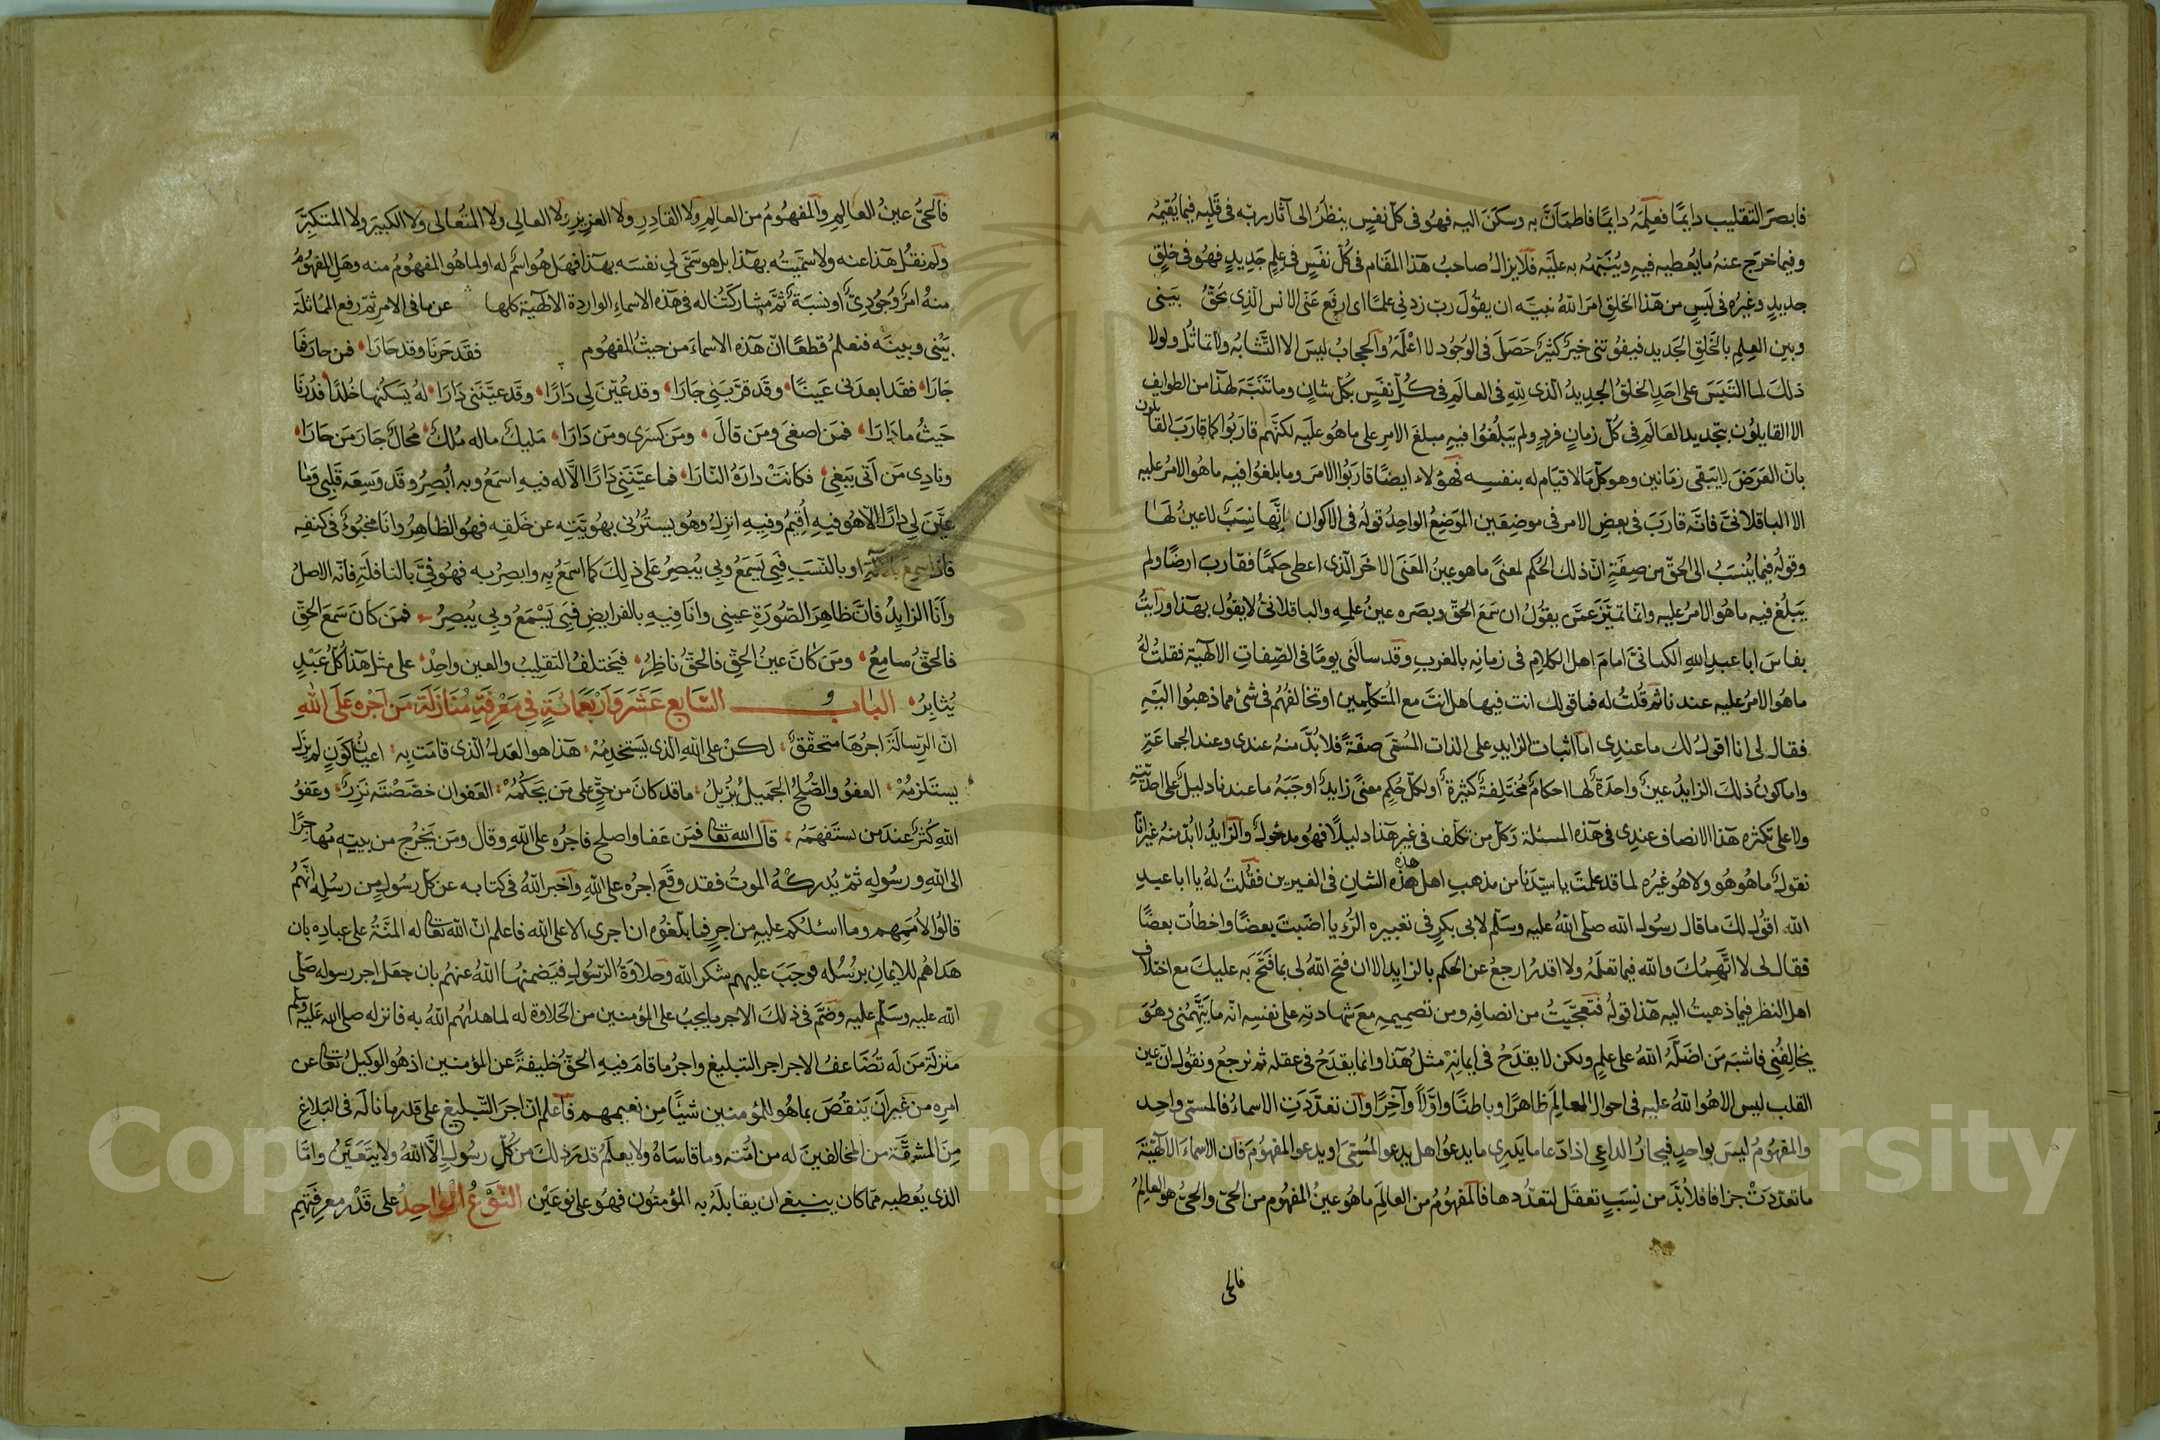 فابصر التقليب دايمًا فعلمه دايمًا فاطمأنّ به وسكن اليه فهو فى كلّ نفس ينظر الى آثار ربّه فى قلبه فيما يقيمه
وفيما خرج عنه ما يعطيه فيه وينبّهه به عليه فلا يزال صاحب هذا المقام فى كلّ نفس فى علم جديد فهو فى خلق
جديد وغيره فى لبس من هذا الخلق امر الله نبيّه ان يقول رب زدنى علمًا اى ارفع عنّى الانس الذى يحقّ بينى
وبين العلم بالخلق الجديد فيفوتنى خير كثير حصل فى الوجود لا اعلمه والحجاب ليس الا التشابه والتماثل ولولا
ذلك لما التبس على احد الخلق الجديد الذى لله فى العالم فى كلّ نفس بكلّ شان وما تنبّه لهذا من الطوايف
الا القايلون بتجديد العالم فى كلّ زمان فرد ولم يبلغوا فيه مبلغ الامر على ما هو عليه لكنّهم قاربوا كما قارب القايلون
بانّ العرض لا يبقى زمانين وهو كلّ ما لا قيام له بنفسه فهؤلاء ايضًا قاربوا الامر وما بلغوا فيه ما هو الامر عليه
الا الباقلانىّ فانّه قارب فى بعض الامر فى موضعين الموضع الواحد قوله فى الاكوان انّها نسب لا عين لها
وقوله فيما ينسب الى الحقّ من صفة انّ ذلك الحكم لمعنىً ما هو عين المعنى الاخر الذى اعطى حكمًا فقارب ايضًا ولم
يبلغ فيه ما هو الامر عليه وانّما تميّز عمّن يقول ان سمع الحقّ وبصره عين علمه والباقلانىّ لا يقول بهذا ورايت
بفاس ابا عبد الله الكتانىّ امام اهل الكلام فى زمانه بالمغرب وقد سالنى يومًا فى الصفات الالهية فقلت له
ما هو الامر عليه عندنا ثم قلت له فما قولك انت فيها هل انت مع المتكلمين او تخالفهم فى شئ مما ذهبوا اليه
فقال لى انا اقول لك ما عندى امّا اثبات الزايد على الذات المسمّى صفة فلا بدّ منه عندى وعند الجماعة
واما كون ذلك الزايد عين واحدة لها احكام مختلفة كثيرة او لكلّ حكم معنىً زايد اوجبه ما عندنا دليل على احديته
ولا على تكثره هذا الانصاف عندى فى هذه المسئلة وكلّ من تكلّف فى غير هذا دليلًا فهو مدخول والزايد لا بدّ منه غير انّا
نقول ما هو هو ولا هو غيره لما قد علمت يا سيّدنا من مذهب اهل هذه الشان فى الغيرين فقلت له يا ابا عبد
الله اقول لك ما قال رسول الله صلّى الله عليه وسلّم لابى بكر فى تعبيره الرؤيا اصبت بعضًا واخطأت بعضًا
فقال لى لا اتّهمك والله فيما تعلمه ولا اقدر ارجع عن الحكم بالزايد الا ان فتح الله لى بما فتح به عليك مع اختلاف
اهل النظر فيما ذهبت اليه هذا قوله فتعجّبت من انصافه ومن تصميمه مع شهادته على نفسه انّه ما يتّهمنى وهو
يخالفنى فاشبه من اضلّه الله على علم ولكن لا يقدح فى ايمانه مثل هذا وانما يقدح فى عقله ثم نرجع ونقول انّ عين
القلب ليس الا هو الله عليه فى احوال العالم ظاهرًا وباطنًا واوّلًا وآخرًا وان تعدّدت الاسماء فالمسمّى واحد
والمفهوم ليس بواحد فيحار الداعى اذا دعا ما يدرى ما يدعو اهل يدعو المسمّى او يدعو المفهوم فان الاسماء الالهيّة
ما تعدّدت جزافا فلا بدّ من نسب تعقل لتعدّدها فالمفهوم من العالم ما هو عين المفهوم من الحىّ والحىّ هو العالم
فالحى
فالحىّ عين العالم والمفهوم من العالم ولا القادر ولا العزيز ولا العالى ولا المتعالى ولا الكبير ولا المتكبّر
ولم نقل هذا عنه ولا سميته بهذا بل هو سمّى لى نفسه بهذا فهل هو اسم له او لما هو المفهوم منه وهل المفهوم
منه امر وجودىّ او نسبة ثمّ مشاركتنا له فى هذه الاسماء الواردة الالهية كلها عن ما فى الامر ثمّ رفع المماثلة
بينى وبينه فنعلم قطعًا انّ هذه الاسماء من حيث المفهوم فقد حرنا وقد حارا فمن حار فما
جارا فقد ابعدنى عينًا وقد قرّبنى جارا وقد عيّن لى دارًا وقد عيّننى دارا له يسكنها خلدًا فدرنا
حيث ما دارا فمن اصغى ومن قال ومن كسرى ومن دارا مليك ما له ملك محال جار من حارا
ونادى من اتى يبغى فكانت داره النارا فما عيّننى دارًا الّا له فيه اسمع وبه ابصر وقد وسعه قلبى وما
عيّن لى دارًا الا هو فيه اقيم وفيه انزل وهو يسترنى بهويّته عن خلقه فهو الظاهر وانا مخبوء فى كنفه
فاذا سمع او بالنسب فبى يسمع وبى يبصر على ذلك كما اسمع به وابصر به فهو فىّ بالنافلة فانّه الاصل
وانا الزايد فانّ ظاهر الصورة عينى وانا فيه بالفرايض فبى يسمع وبى يبصر فمن كان سمع الحقّ
فالحقّ سامع ومن كان عين الحقّ فالحقّ ناظر فيختلف التقليب والعين واحد على مثل هذا كلّ عبد
يثابر الباب السابع عشر واربعمائة فى معرفة منازلة من اجره على الله
انّ الرسالة اجرها متحقّق لكن على الله الذى يستخدمه هذا هو العدل الذى قامت به اعيان كون لم يزل
يستلزمه العفو والصلح الجميل يزيل ما قد كان من حقّ على من يحكمه العفو ان خصّصته نزر وعفو
الله كثر عند من يستفهمه قال الله تعالى فمن عفا واصلح فاجره على الله وقال ومن يخرج من بيته مهاجرًا
الى الله ورسوله ثمّ يدركه الموت فقد وقع اجره على الله واخبر الله فى كتابه عن كل رسول من رسله انّهم
قالوا لاممهم وما اسئلكم عليه من اجر فيما بلغوه ان اجرى الا على الله فاعلم انّ الله تعالى له المنّة على عباده بان
هداهم للايمان برسله فوجب عليهم شكر الله وحلاوة الرسول فيضمنها الله عنهم بان جعل اجر رسوله صلّى
الله عليه وسلّم عليه وضمّ فى ذلك الاجر ما يجب على المؤمنين من الحلاوة له لما هداهم الله به فانزله صلى الله عليه وسلم
منزلة من له تضاعف الاجر اجر التبليغ واجر ما قام فيه الحقّ خليفة عن المؤمنين اذ هو الوكيل تعالى عن
امره من غير ان ينقص بما هو للمؤمنين شيئًا من نعيمهم فاعلم انّ اجر التبليغ على قدر ما ناله فى البلاغ
من المشقّة من المخالفين له من امّته وما قاساه ولا يعلم قدر ذلك من كلّ رسول الّا الله ولا يتعيّن وامّا
الذى يعطيه ممّا كان ينبغى ان يقابله به المؤمنون فهو على نوعين النوع الواحد على قدر معرفتهم